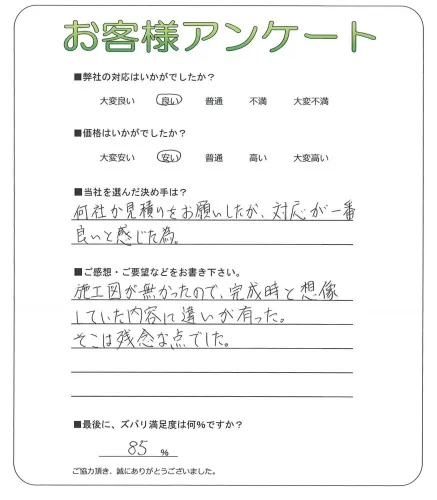 お客様アンケート
■弊社の対応はいかがでしたか？
大変良い 良い 普通 不満 大変不満
■価格はいかがでしたか？
大変安い 安い 普通 高い 大変高い
■当社を選んだ決め手は？
何社か見積りをお願いしたが、対応が一番
良いと感じた為。
■ご感想・ご要望などをお書き下さい。
施工図が無かったので、完成時と想像
していた内容に違いが有った。
そこは残念な点でした。
■最後に、ズバリ満足度は何％ですか？
85 ％
ご協力頂き、誠にありがとうございました。